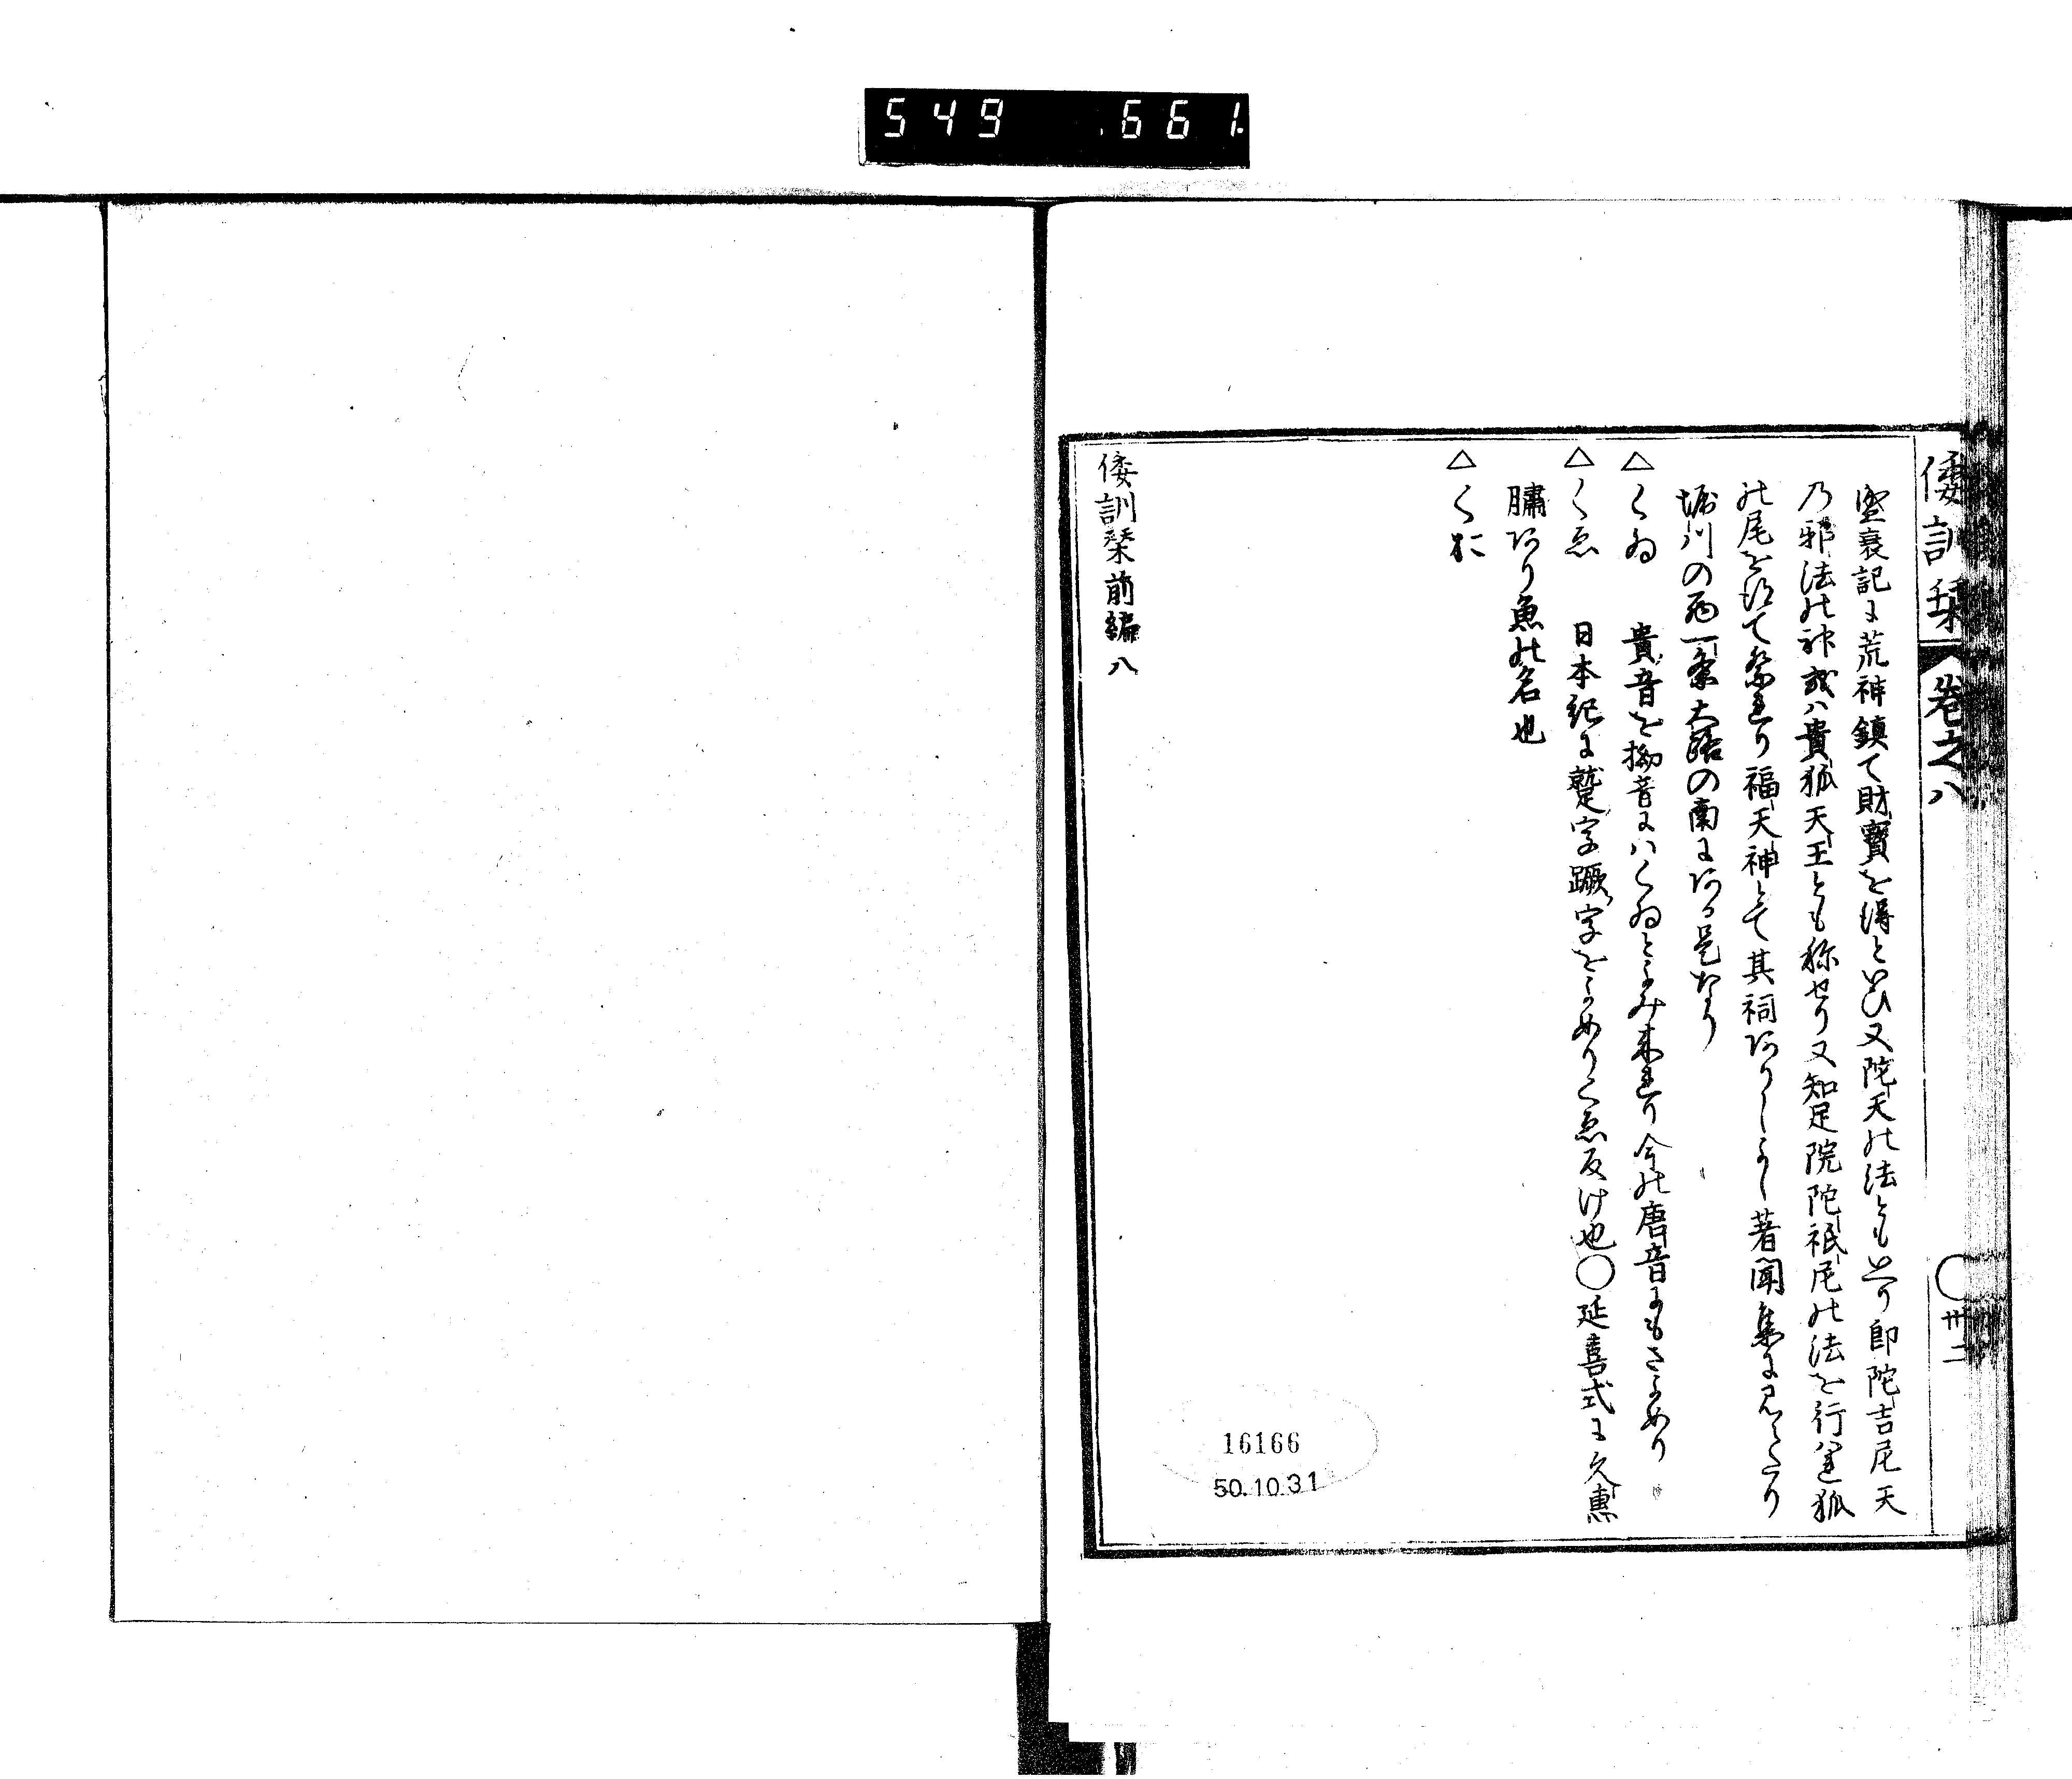 549 .661.
倭訓栞 卷之八 〇卅二
盛衰記に荒神鎮て財寳を得といひ又陀天の法ともいへり即陀吉尼天
乃邪法の神或ハ貴狐天王とも称せり又知足院陀祇尼の法を行ハれ狐
の尾を得て祭れり福天神とて其祠ありしよし著聞集に見えたり
堀川の西一条大路の南にある是なり
△くゐ 貴音を拗音にハくゐとよみ来れり今の唐音にもさよめり
△くゑ 日本紀に蹵字蹶字をよめりくゑ反け也〇延喜式に久恵
鱐あり魚の名也
△くお
倭訓栞前編八
16166
50.10.31